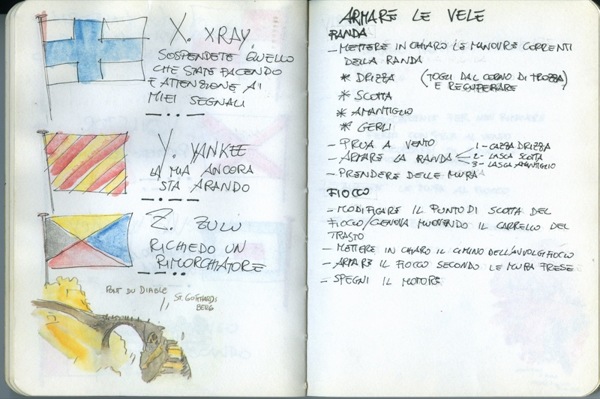 X. XRAY
SOSPENDETE QUELLO
CHE STATE FACENDO
E ATTENZIONE AI
MIEI SEGNALI
Y. YANKEE
LA MIA ANCORA
STA ARANDO
Z. ZULU
RICHIEDO UN
RIMORCHIATORE
PONT DU DIABLE
ST. GOTTHARDS
BERG
ARMARE LE VELE
RANDA
- METTERE IN CHIARO LE MANOVRE CORRENTI
DELLA RANDA
* DRIZZA (TOGLI DAL CORNO DI TROZZA)
E RECUPERARE
* SCOTTA
* AMANTIGLIO
* GERLI
- PRUA A VENTO
- ARMARE LA RANDA
1 - CAZZA DRIZZA
2 - LASCA SCOTTA
3 - LASCA AMANTIGLIO
- PRENDERE DELLE MURA
FIOCCO
- MODIFICARE IL PUNTO DI SCOTTA DEL
FIOCCO/GENOVA MUOVENDO IL CARRELLO DEL
TRASTO
- METTERE IN CHIARO IL CIMINO DELL'AVVOLGIFIOCCO
- ARMARE IL FIOCCO SECONDO LE MURA PRESE
- SPEGNI IL MOTORE